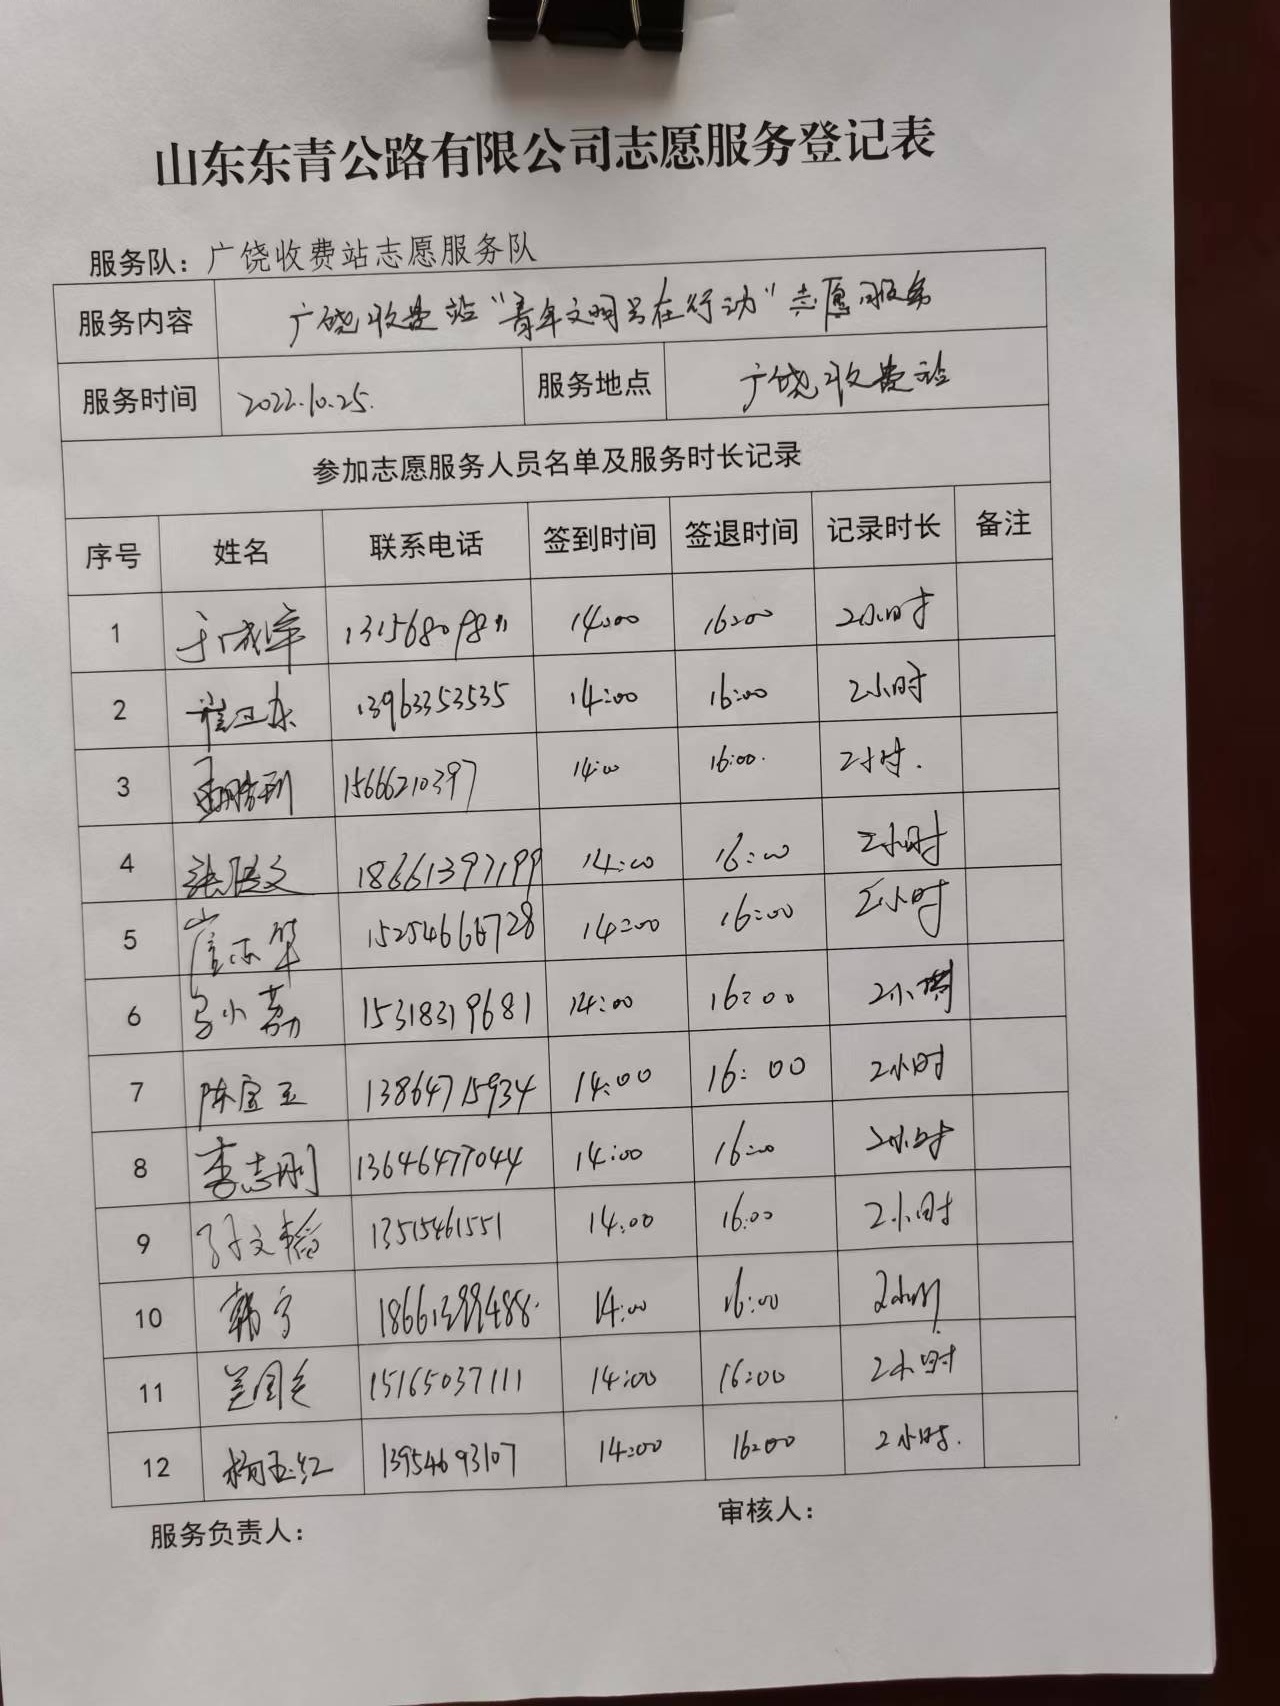 山东东青公路有限公司志愿服务登记表
服务队：广饶收费站志愿服务队
服务内容 广饶收费站"青年文明号在行动"志愿服务
服务时间 2022.10.25. 服务地点 广饶收费站
参加志愿服务人员名单及服务时长记录
序号 姓名 联系电话 签到时间 签退时间 记录时长 备注
1 14:00 16:00 2小时
2 13963353535 14:00 16:00 2小时
3 15666210397 14:00 16:00. 2小时.
4 18661397199 14:00 16:00 2小时
5 15254666728 14:00 16:00 2小时
6 15318319681 14:00 16:00 2小时
7 陈宝玉 13864715934 14:00 16:00 2小时
8 李志刚 13646477044 14:00 16:00 2小时
9 孙文韬 13515461551 14:00 16:00 2小时
10 韩宁 14:00 16:00 2小时
11 15165037111 14:00 16:00 2小时
12 杨玉红 13954693107 14:00 16:00 2小时.
服务负责人： 审核人：